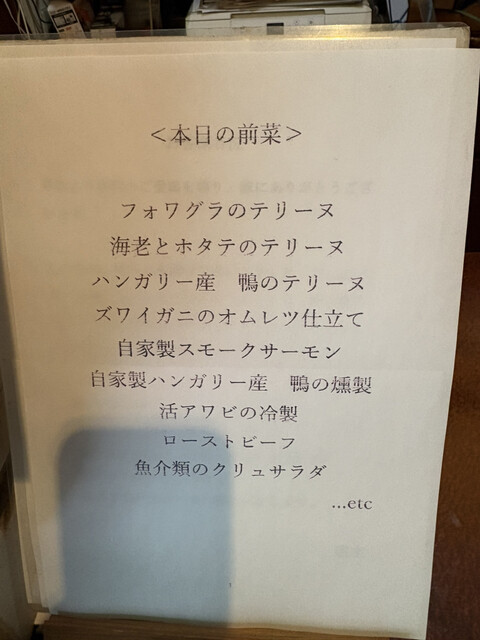 ＜本日の前菜＞
フォワグラのテリーヌ
海老とホタテのテリーヌ
ハンガリー産　鴨のテリーヌ
ズワイガニのオムレツ仕立て
自家製スモークサーモン
自家製ハンガリー産　鴨の燻製
活アワビの冷製
ローストビーフ
魚介類のクリュサラダ
…etc